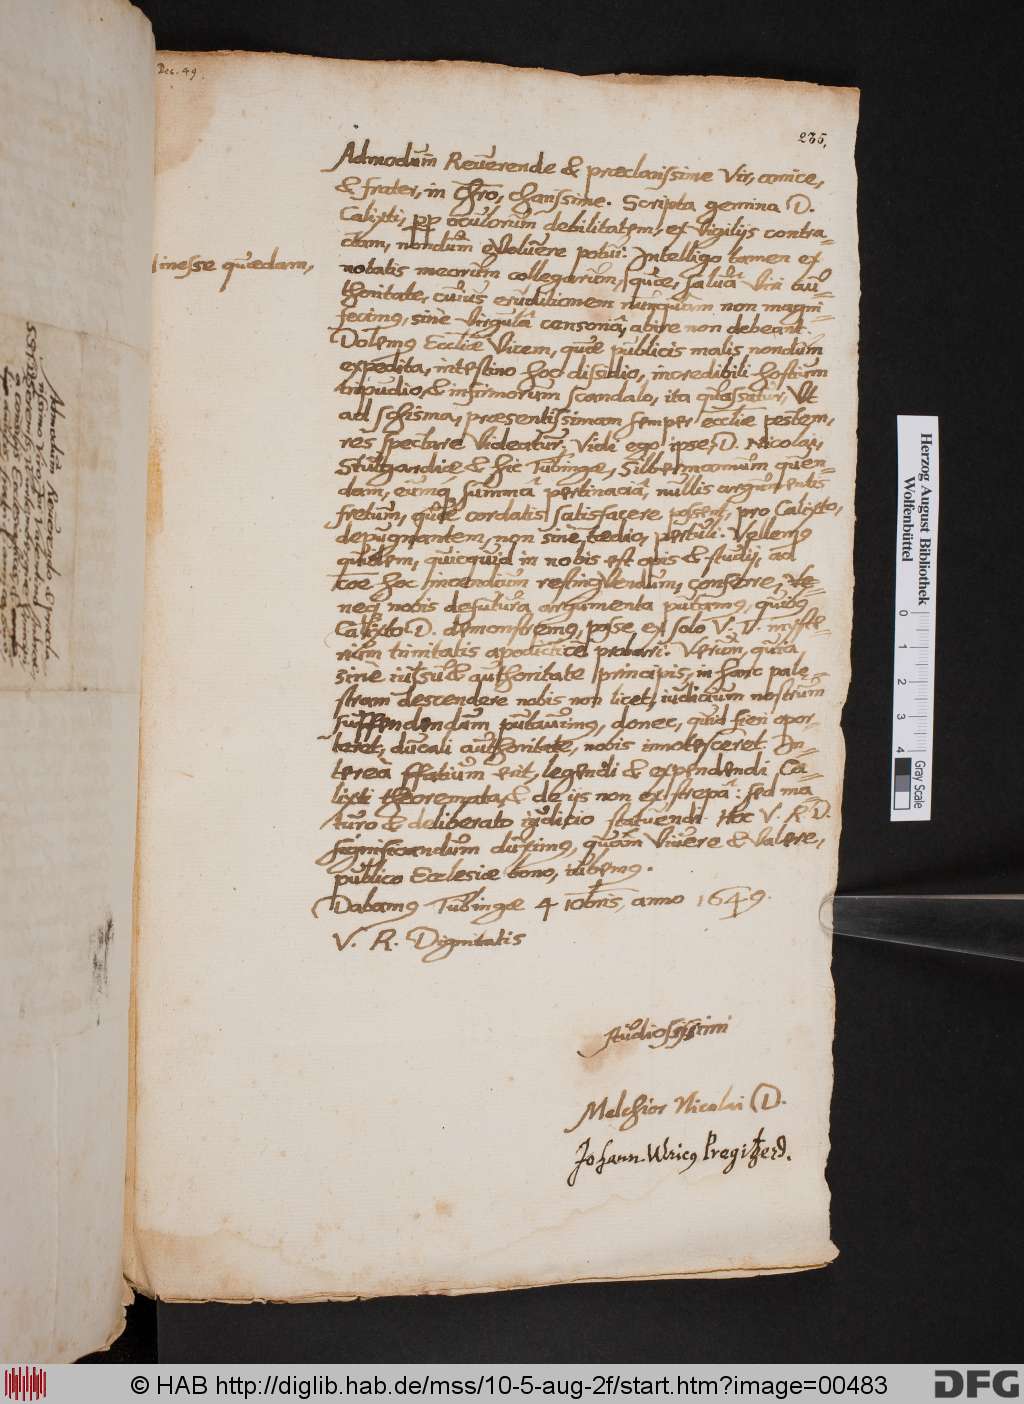 Dec. 49.
235,
Admodum Reverende & præclarissime Vir, amice,
& frater, in Chro, charissime. Scripta gemina D.
Calixti, pp oculorum debilitatem, ex vigilijs contra-
ctam, nondum evolvere potui: Intelligo tamen ex
inesse quædam,
notatis meorum collegarum, quæ, salvâ Viri au-
thoritate, cuius eruditionem nunquam non magni
fecimus, sine virgulâ censoriâ, abire non debeant.
Dolemus Eccliæ vicem, quæ publicis malis nondum
expedita, intestino hoc dissidio, incredibili hostium
tripudio, & infirmorum scandalo, ita quassatur, Vt
ad schisma, præsentissimam semper eccliæ pestem,
res spectare videatur. Vidi ego ipse, D. Nicolai,
Stutgardiæ & hic Tubingæ, Silbermannum quen-
dam, eumq summâ pertinaciâ, nullis argumentis
fretum, quæ cordatis satisfacere possent, pro Calixto,
depugnantem, non sine tædio, pertuli. Vellemus
quidem, quicquid in nobis est opis & studij, ad
hoc incendium restingvendum, conferre,
neq nobis defutura argumenta putamus, quibus
Calixto D. demonstremus, posse ex solo V. T. myste-
rium trinitatis apodicticè probari. Verùm, quia
sine iussu & authoritate principis, in hanc palę-
stram descendere nobis non licet, iudicium nostrum
suspendendum putavimus, donec, quid fieri opor-
teret, ducali authoritate, nobis innotesceret. In-
terea spatium erit, legendi & expendendi Ca-
lixti theoremata, & de ijs non : sed ma
turo & deliberato iudicio statuendi. Hoc V. R. D.
significandum duximus, quam vivere & valere,
publico Ecclesiæ bono, iubemus.
Dabamus Tubingæ 4 10bris, anno 1649.
V. R. Dignitatis
studiosissimi
Melchior Nicolai D.
Johann-Ulricus Pregitzer D.
Admodum Reverendo &
Herzog August Bibliothek
Wolfenbüttel
0 1 2 3 4
Gray Scale
© HAB http://diglib.hab.de/mss/10-5-aug-2f/start.htm?image=00483
DFG